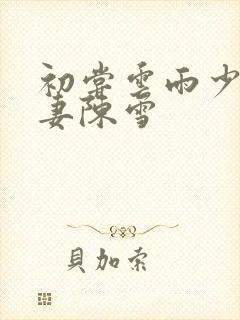 初嘗雲雨少
妻陳雪
貝加索